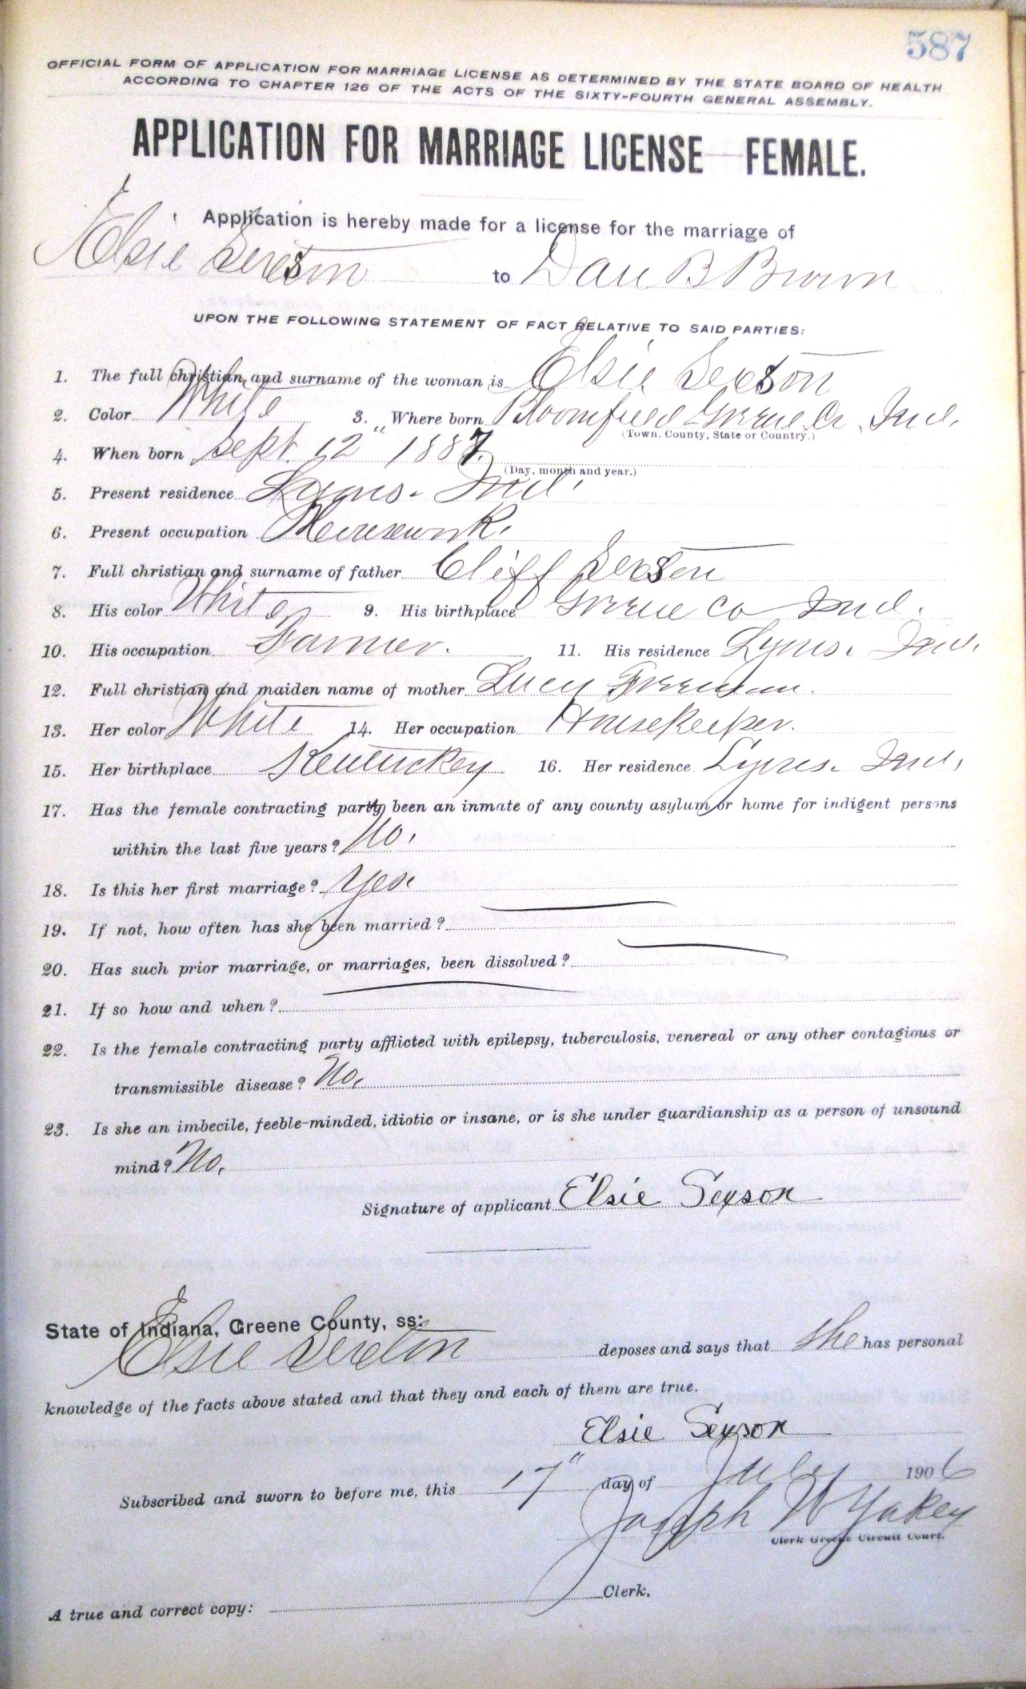 587
OFFICIAL FORM OF APPLICATION FOR MARRIAGE LICENSE AS DETERMINED BY THE STATE BOARD OF HEALTH
ACCORDING TO CHAPTER 126 OF THE ACTS OF THE SIXTY-FOURTH GENERAL ASSEMBLY.
APPLICATION FOR MARRIAGE LICENSE FEMALE.
Application is hereby made for a license for the marriage of
Elsie Sexson to Dan B Brown
UPON THE FOLLOWING STATEMENT OF FACT RELATIVE TO SAID PARTIES:
1. The full christian and surname of the woman is Elsie Sexson
2. Color White 3. Where born Bloomfield Greene Co, Ind.
(Town, County, State or Country.)
4. When born Sept. 12" 1887.
(Day, month and year.)
5. Present residence Lyons. Ind.
6. Present occupation Housework.
7. Full christian and surname of father Cliff Sexson
8. His color White 9. His birthplace Greene Co Ind.
10. His occupation Farmer. 11. His residence Lyons. Ind.
12. Full christian and maiden name of mother Lucy Freeman.
13. Her color White 14. Her occupation Housekeeper.
15. Her birthplace Kentuckey 16. Her residence Lyons. Ind.
17. Has the female contracting party been an inmate of any county asylum or home for indigent persons
within the last five years? No.
18. Is this her first marriage? Yes.
19. If not, how often has she been married?
20. Has such prior marriage, or marriages, been dissolved?
21. If so how and when?
22. Is the female contracting party afflicted with epilepsy, tuberculosis, venereal or any other contagious or
transmissible disease? No.
23. Is she an imbecile, feeble-minded, idiotic or insane, or is she under guardianship as a person of unsound
mind? No.
Signature of applicant Elsie Sexson
State of Indiana, Greene County, ss:
Elsie Sexton deposes and says that she has personal
knowledge of the facts above stated and that they and each of them are true.
Elsie Sexson
Subscribed and sworn to before me, this 17" day of July 1906
Joseph W Yakey
Clerk Greene Circuit Court.
A true and correct copy: Clerk.